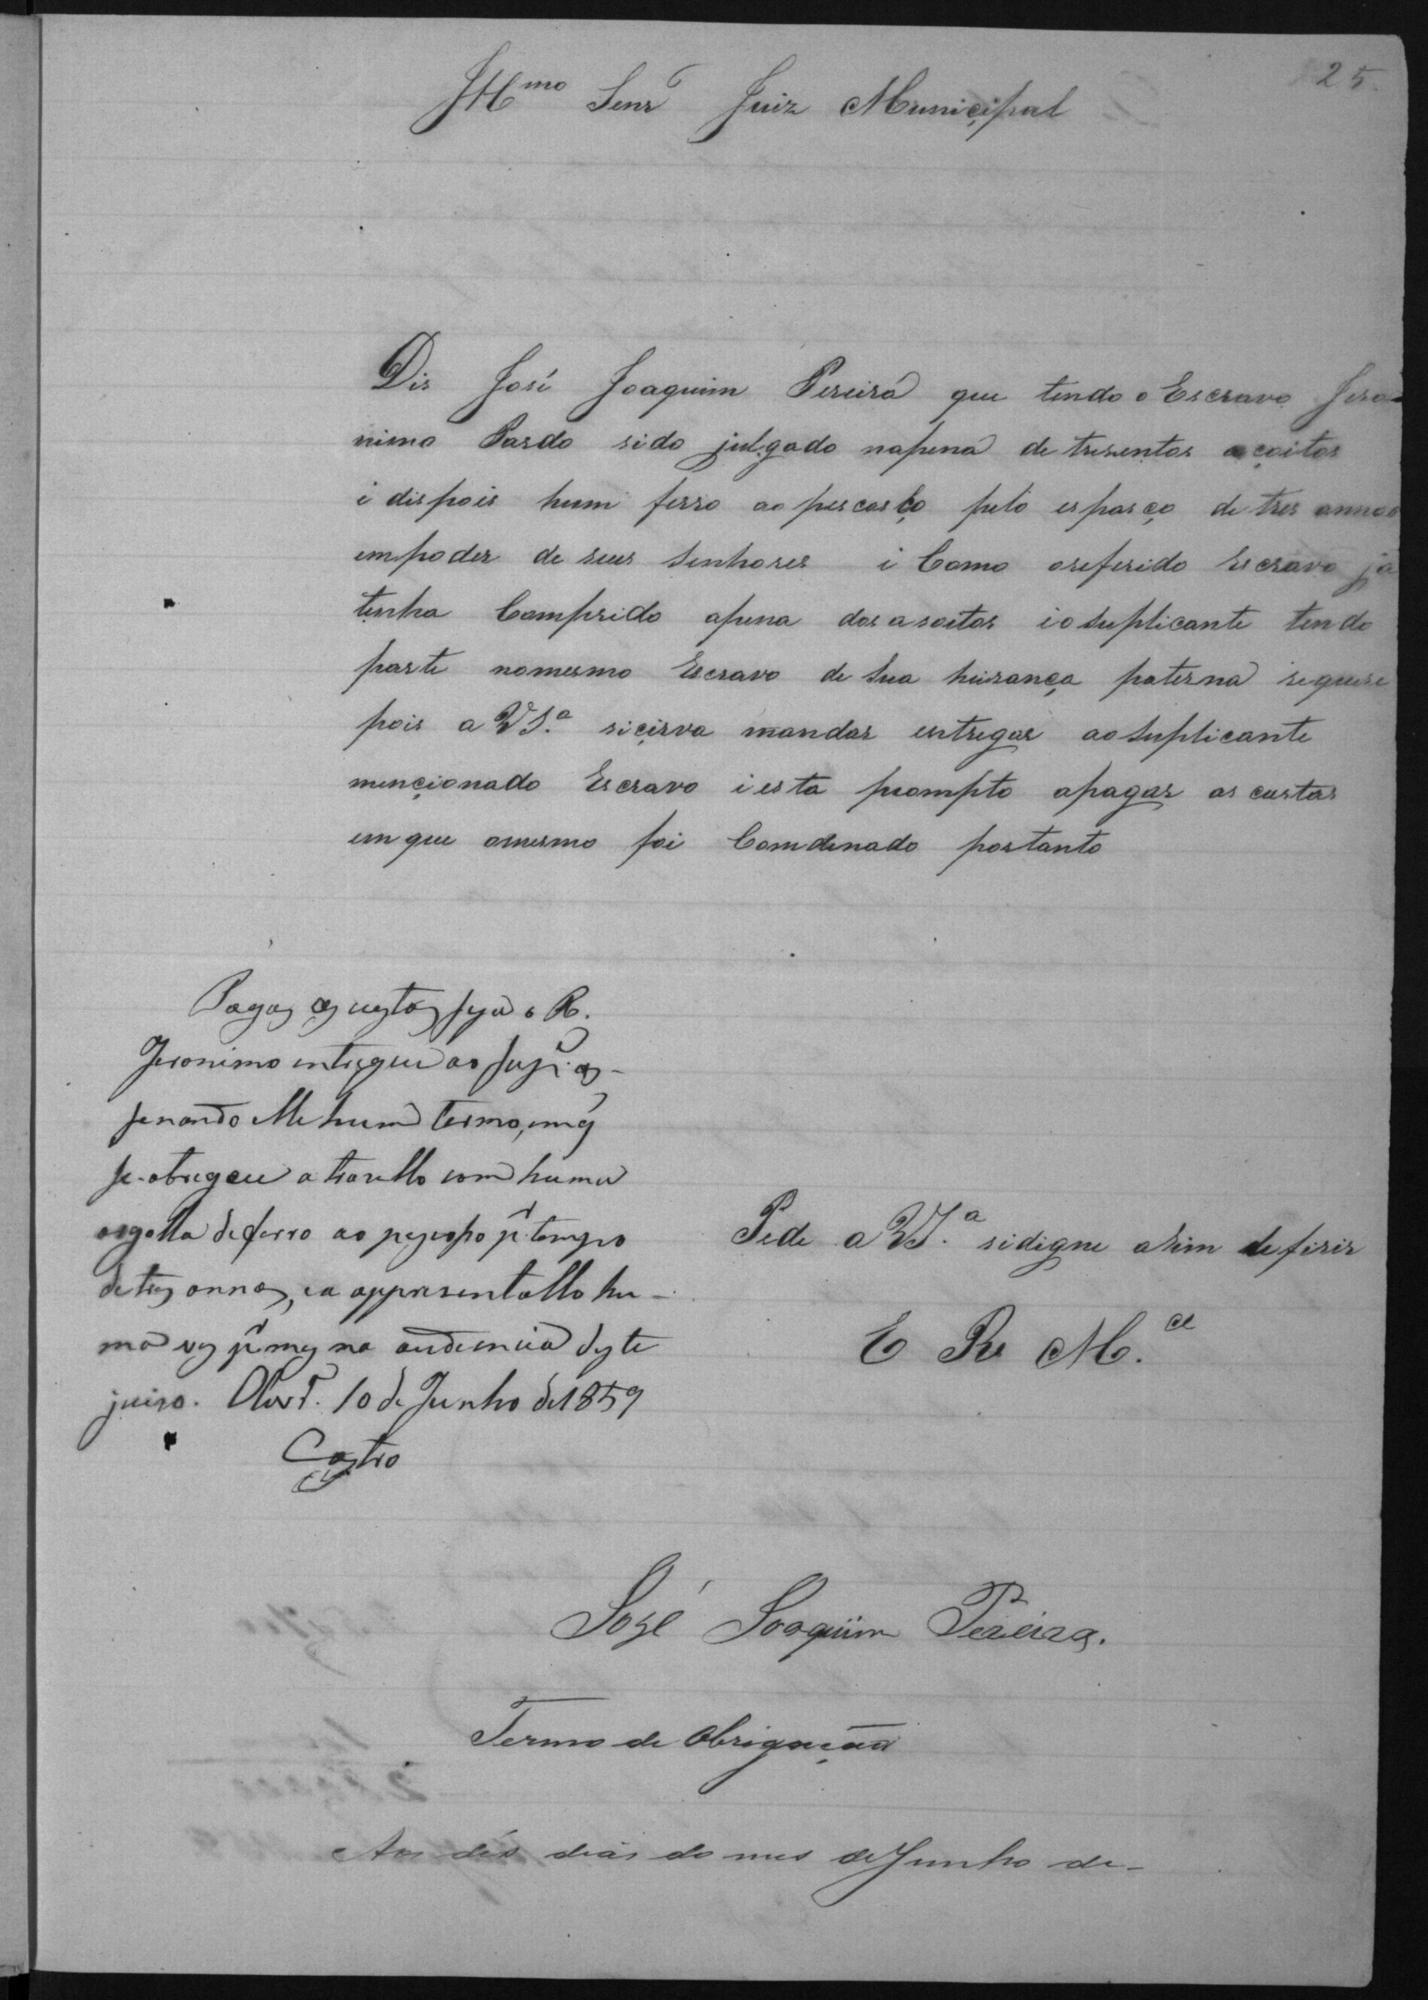 25.
Illmo Senr Juiz Municipal
Dis José Joaquim Pereira que tendo o Escravo Jero-
nimo Pardo sido julgado napena de tresentos açoitos
i dispois hum ferro ao pescosço pelo espaço de tres annos
empoder de seus Senhores i Como oreferido Escravo já
tenha Comprido apena dos asoitos i o Suplicante tendo
parte nomesmo Escravo de Sua hirança paterna requere
pois a V S.ª sicirva mandar entregar ao Suplicante
mencionado Escravo i esta prompto apagar as custas
em que omesmo foi Comdenado portanto
Pagas as custas seja o R.
Jeronimo entregue ao Supe. as-
signando elle hum termo, em q
se obrigue a trasello com huma
argolla de ferro ao pescoço pr. tempo
de tres annos, e a appresentallo hu-
ma vez pr. mez na audiencia deste
juizo. 10 de Junho de 1859
Castro
Pede a V S.ª sidigne asim defirir
E R M.ce
José Joaquim Pereira.
Termo de Obrigação
Aos dés dias do mes de Junho de-